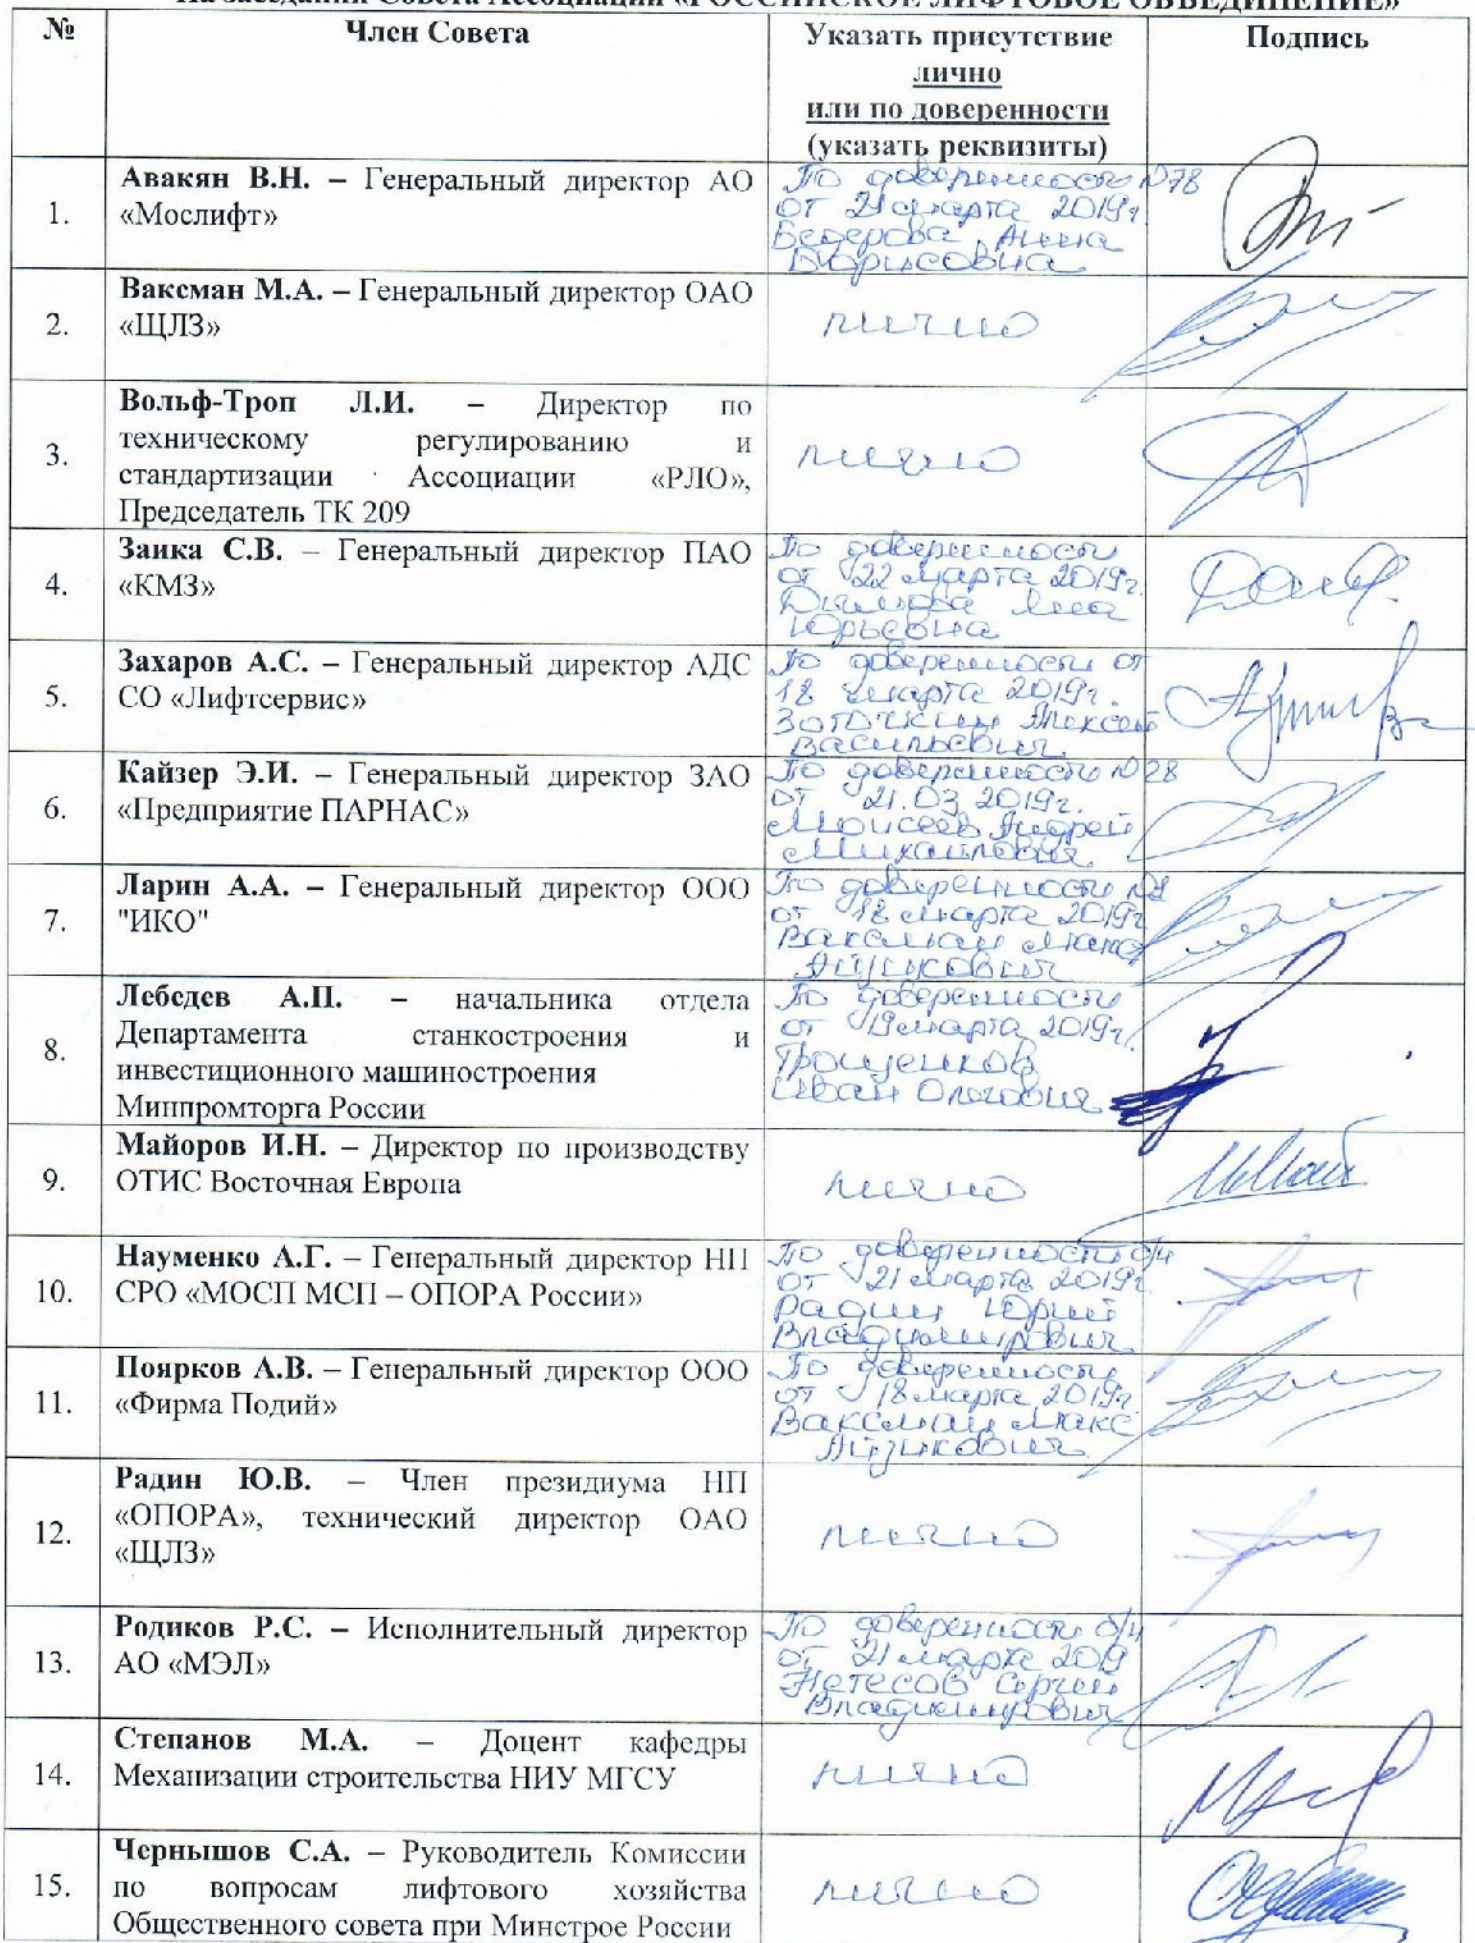 На заседании Совета Ассоциации «РОССИЙСКОЕ ЛИФТОВОЕ ОБЪЕДИНЕНИЕ»
№
Член Совета
Указать присутствие
лично
или по доверенности
(указать реквизиты)
Подпись
1.
Авакян В.Н. – Генеральный директор АО
«Мослифт»
По доверенности №78
от 21 марта 2019г
Бедерова Анна
Борисовна
2.
Ваксман М.А. – Генеральный директор ОАО
«ЩЛЗ»
лично
3.
Вольф-Троп Л.И. – Директор по
техническому регулированию и
стандартизации Ассоциации «РЛО»,
Председатель ТК 209
лично
4.
Заика С.В. – Генеральный директор ПАО
«КМЗ»
По доверенности
от 22 марта 2019г.
Юрьевна
5.
Захаров А.С. – Генеральный директор АДС
СО «Лифтсервис»
По доверенности от
18 марта 2019г.
Зоточкин Алексей
Васильевич
6.
Кайзер Э.И. – Генеральный директор ЗАО
«Предприятие ПАРНАС»
По доверенности №28
от 21.03.2019г.
Моисеев Андрей
Михайлович
7.
Ларин А.А. – Генеральный директор ООО
"ИКО"
По доверенности
от 18 марта 2019г
Ваксман Макс
Айзикович
8.
Лебедев А.П. – начальника отдела
Департамента станкостроения и
инвестиционного машиностроения
Минпромторга России
По доверенности
от 19 марта 2019г.
Трощенков
Иван Олегович
9.
Майоров И.Н. – Директор по производству
ОТИС Восточная Европа
лично
10.
Науменко А.Г. – Генеральный директор НП
СРО «МОСП МСП – ОПОРА России»
По доверенности б/н
от 21 марта 2019г.
Радин Юрий
Владимирович
11.
Поярков А.В. – Генеральный директор ООО
«Фирма Подий»
По доверенности
от 18 марта 2019г.
Ваксман Макс
Айзикович
12.
Радин Ю.В. – Член президиума НП
«ОПОРА», технический директор ОАО
«ЩЛЗ»
лично
13.
Родиков Р.С. – Исполнительный директор
АО «МЭЛ»
По доверенности б/н
от 21 марта 2019
Нетесов Сергей
Владимирович
14.
Степанов М.А. – Доцент кафедры
Механизации строительства НИУ МГСУ
лично
15.
Чернышов С.А. – Руководитель Комиссии
по вопросам лифтового хозяйства
Общественного совета при Минстрое России
лично